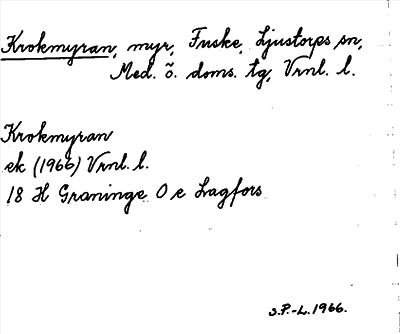 Krokmyran, myr, Fuske, Ljustorps sn,
Med. ö. doms. tg, Vrnl. l.
Krokmyran
ek (1966) Vrnl. l.
18 H Graninge O e Lagfors
S.P.-L. 1966.